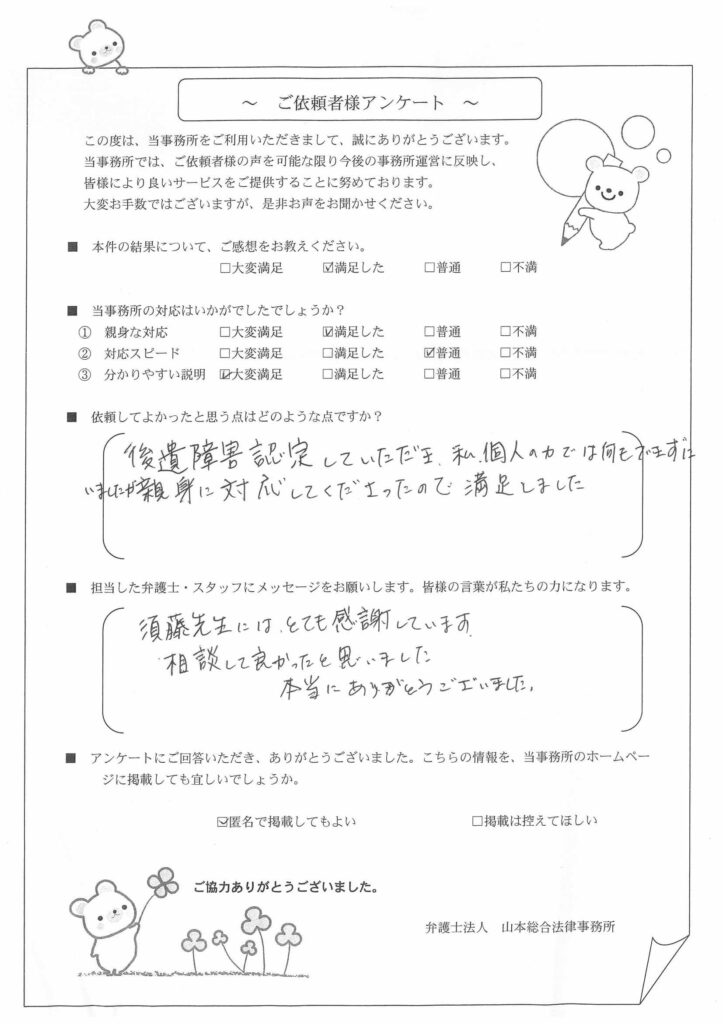 ～ ご依頼者様アンケート ～
この度は、当事務所をご利用いただきまして、誠にありがとうございます。
当事務所では、ご依頼者様の声を可能な限り今後の事務所運営に反映し、
皆様により良いサービスをご提供することに努めております。
大変お手数ではございますが、是非お声をお聞かせください。
■ 本件の結果について、ご感想をお教えください。
□大変満足 ☑満足した □普通 □不満
■ 当事務所の対応はいかがでしたでしょうか？
① 親身な対応 □大変満足 ☑満足した □普通 □不満
② 対応スピード □大変満足 □満足した ☑普通 □不満
③ 分かりやすい説明 ☑大変満足 □満足した □普通 □不満
■ 依頼してよかったと思う点はどのような点ですか？
後遺障害認定していただき、私、個人の力では何もできずに
いましたが親身に対応してくださったので満足しました
■ 担当した弁護士・スタッフにメッセージをお願いします。皆様の言葉が私たちの力になります。
須藤先生には、とても感謝しています。
相談して良かったと思いました
本当にありがとうございました。
■ アンケートにご回答いただき、ありがとうございました。こちらの情報を、当事務所のホームペー
ジに掲載しても宜しいでしょうか。
☑匿名で掲載してもよい □掲載は控えてほしい
ご協力ありがとうございました。
弁護士法人 山本総合法律事務所